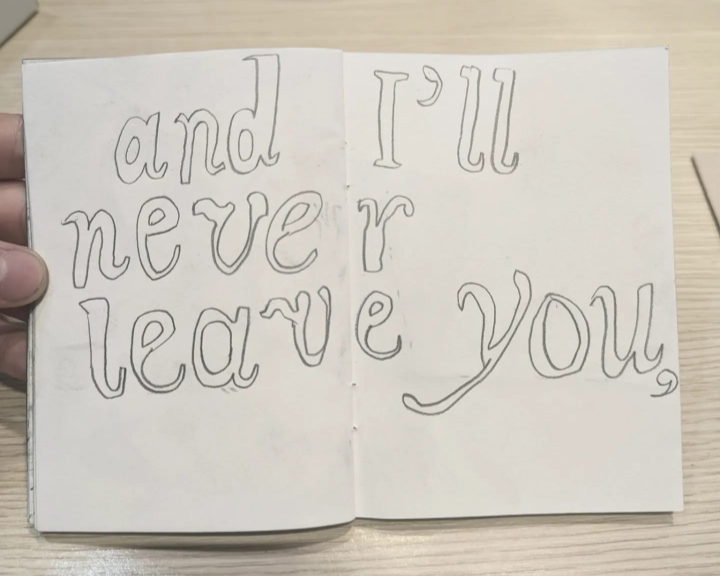 and I'll
never
leave you,